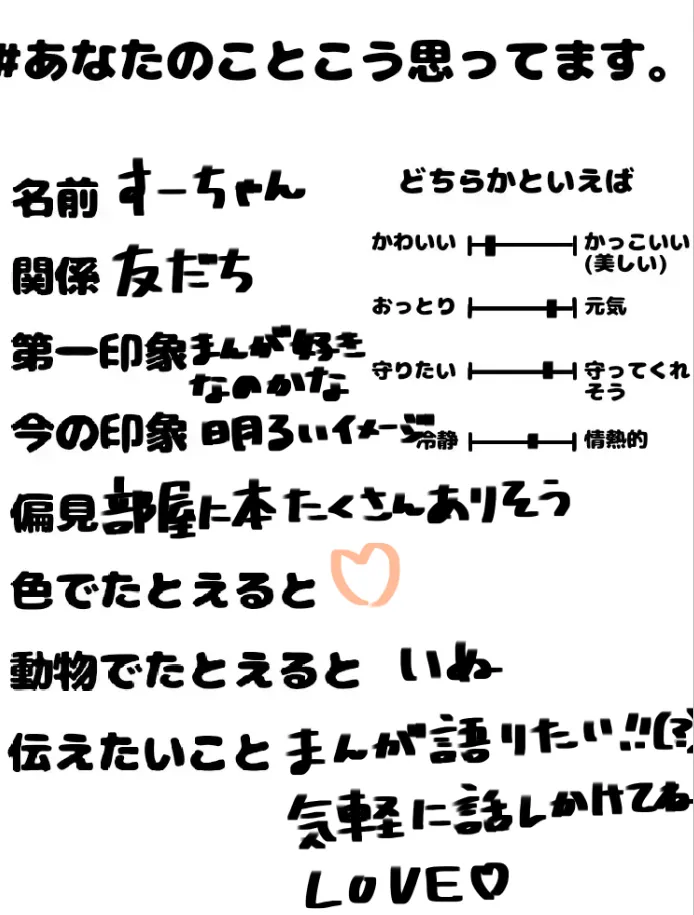 #あなたのことこう思ってます。
名前 すーちゃん
関係 友だち
第一印象 まんが好き
なのかな
今の印象 明るいイメージ
偏見 部屋に本たくさんありそう
色でたとえると
動物でたとえると いぬ
伝えたいこと まんが語りたい!!(?)
気軽に話しかけてね
LOVE♡
どちらかといえば
かわいい かっこいい
(美しい)
おっとり 元気
守りたい 守ってくれ
そう
冷静 情熱的